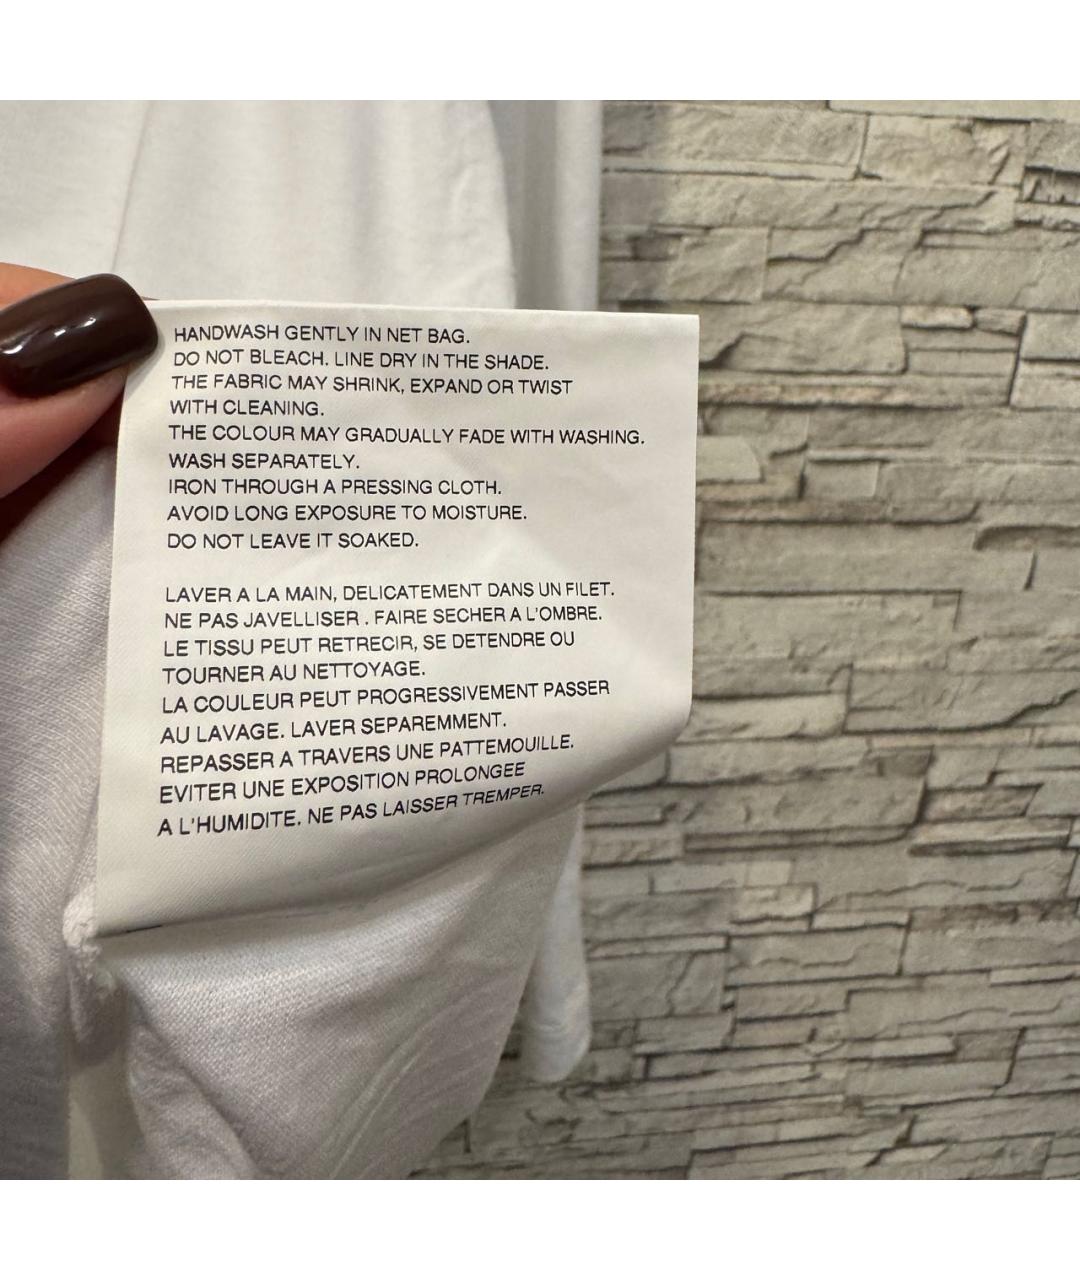 HANDWASH GENTLY IN NET BAG.
DO NOT BLEACH. LINE DRY IN THE SHADE.
THE FABRIC MAY SHRINK, EXPAND OR TWIST
WITH CLEANING.
THE COLOUR MAY GRADUALLY FADE WITH WASHING.
WASH SEPARATELY.
IRON THROUGH A PRESSING CLOTH.
AVOID LONG EXPOSURE TO MOISTURE.
DO NOT LEAVE IT SOAKED.
LAVER A LA MAIN, DELICATEMENT DANS UN FILET.
NE PAS JAVELLISER . FAIRE SECHER A L'OMBRE.
LE TISSU PEUT RETRECIR, SE DETENDRE OU
TOURNER AU NETTOYAGE.
LA COULEUR PEUT PROGRESSIVEMENT PASSER
AU LAVAGE. LAVER SEPAREMMENT.
REPASSER A TRAVERS UNE PATTEMOUILLE.
EVITER UNE EXPOSITION PROLONGEE
A L'HUMIDITE. NE PAS LAISSER TREMPER.